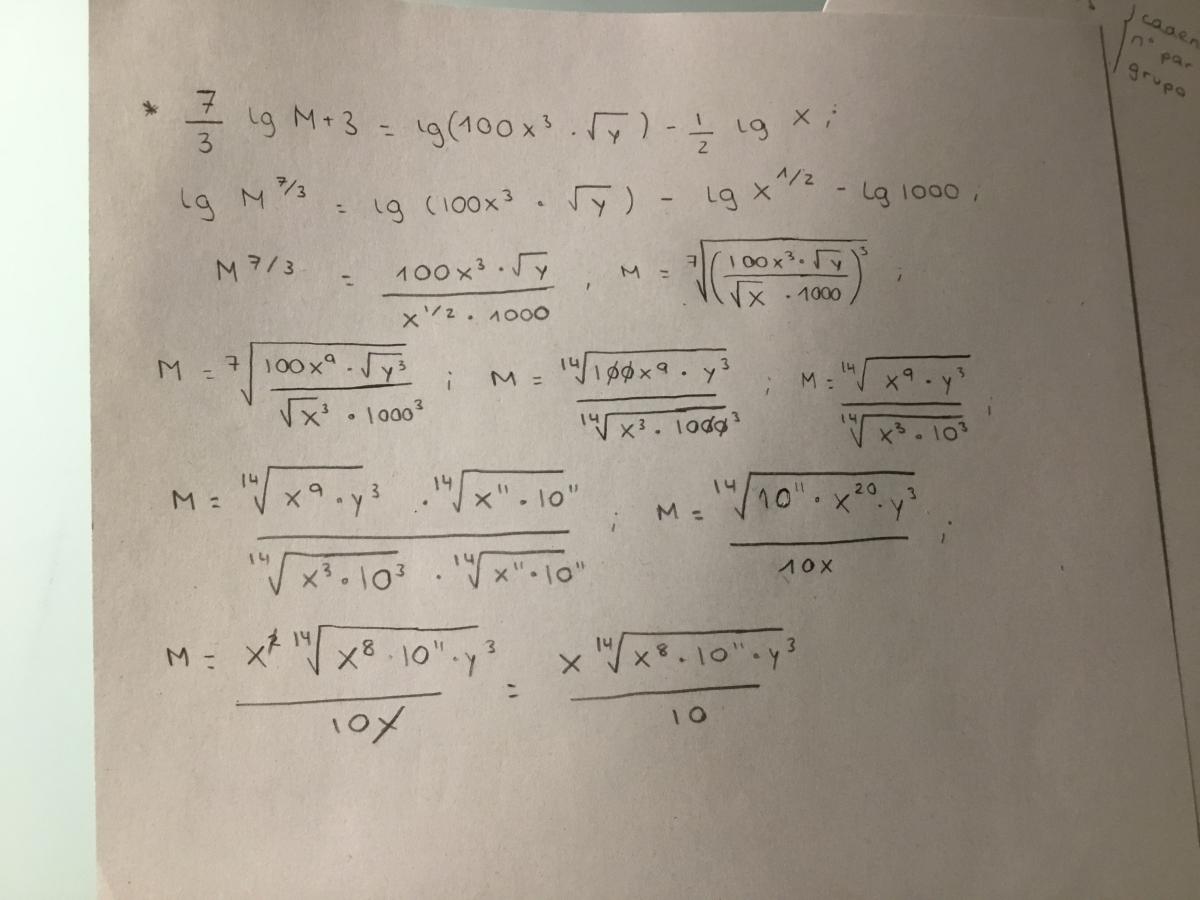 * 7/3 lg M + 3 = lg(100x³ · √y) - 1/2 lg x ;
lg M^7/3 = lg (100x³ · √y) - lg x^1/2 - lg 1000 ;
M^7/3 = 100x³ · √y / x^1/2 · 1000 ; M = ⁷√(100x³ · √y / √x · 1000)³ ;
M = ⁷√(100x⁹ · √y³ / √x³ · 1000³) ; M = ¹⁴√(100x⁹ · y³) / ¹⁴√(x³ · 1000³) ; M = ¹⁴√(x⁹ · y³) / ¹⁴√(x³ · 10³) ;
M = ¹⁴√(x⁹ · y³) · ¹⁴√(x¹¹ · 10¹¹) / ¹⁴√(x³ · 10³) · ¹⁴√(x¹¹ · 10¹¹) ; M = ¹⁴√(10¹¹ · x²⁰ · y³) / 10x ;
M = x² ¹⁴√(x⁸ · 10¹¹ · y³) / 10x = x ¹⁴√(x⁸ · 10¹¹ · y³) / 10
nº par
grupo